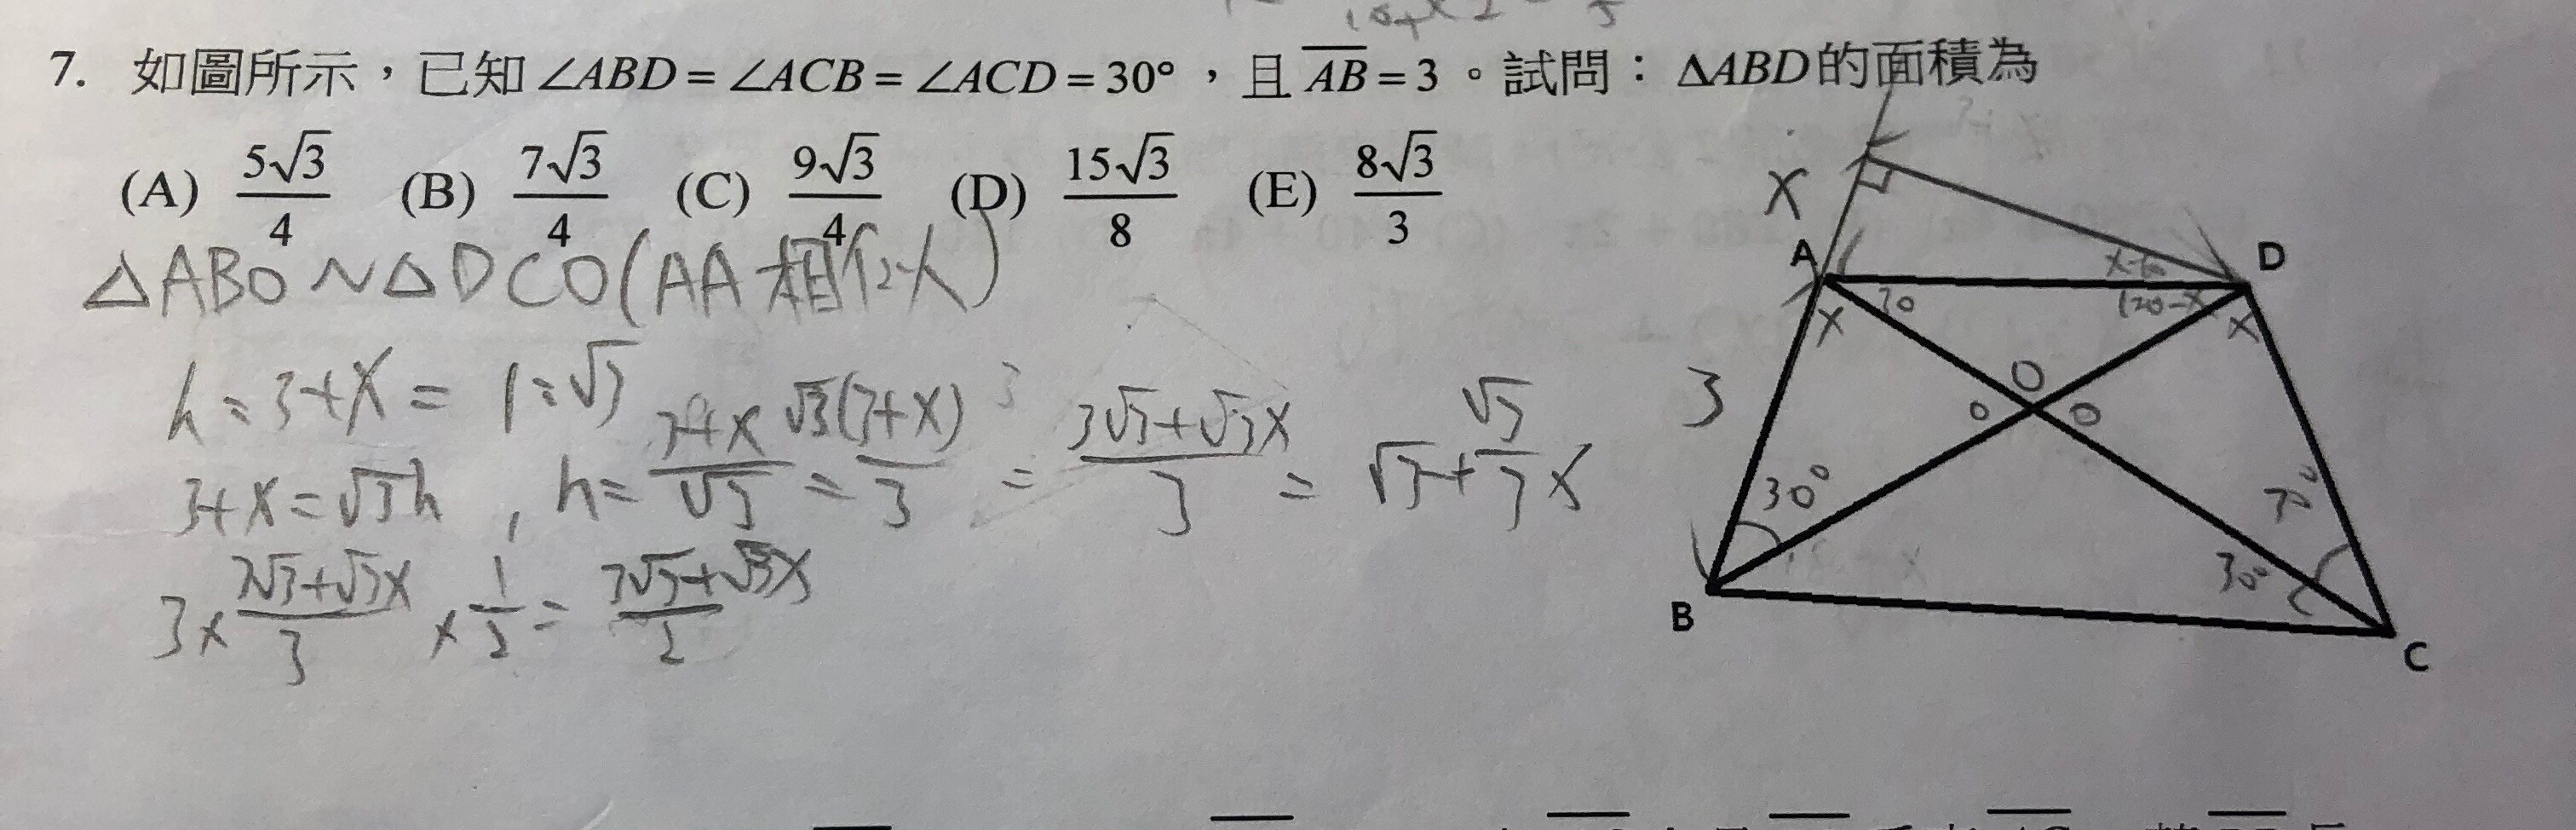 7. 如圖所示，已知 ∠ABD = ∠ACB = ∠ACD = 30°，且 \overline{AB} = 3。試問：ΔABD的面積為
(A) 5√3/4 (B) 7√3/4 (C) 9√3/4 (D) 15√3/8 (E) 8√3/3
△ABO ~ △DCO (AA 相似)
h : 3+x = 1 : √3
3+x = √3h , h = (3+x)/√3 = √3(3+x)/3 = (3√3+√3x)/3 = √3 + √3/3 x
3 × (3√3+√3x)/3 × 1/2 = (3√3+√3x)/2
x
A
D
x
30
x-60
120-x
x
3
O
30°
30°
B
C